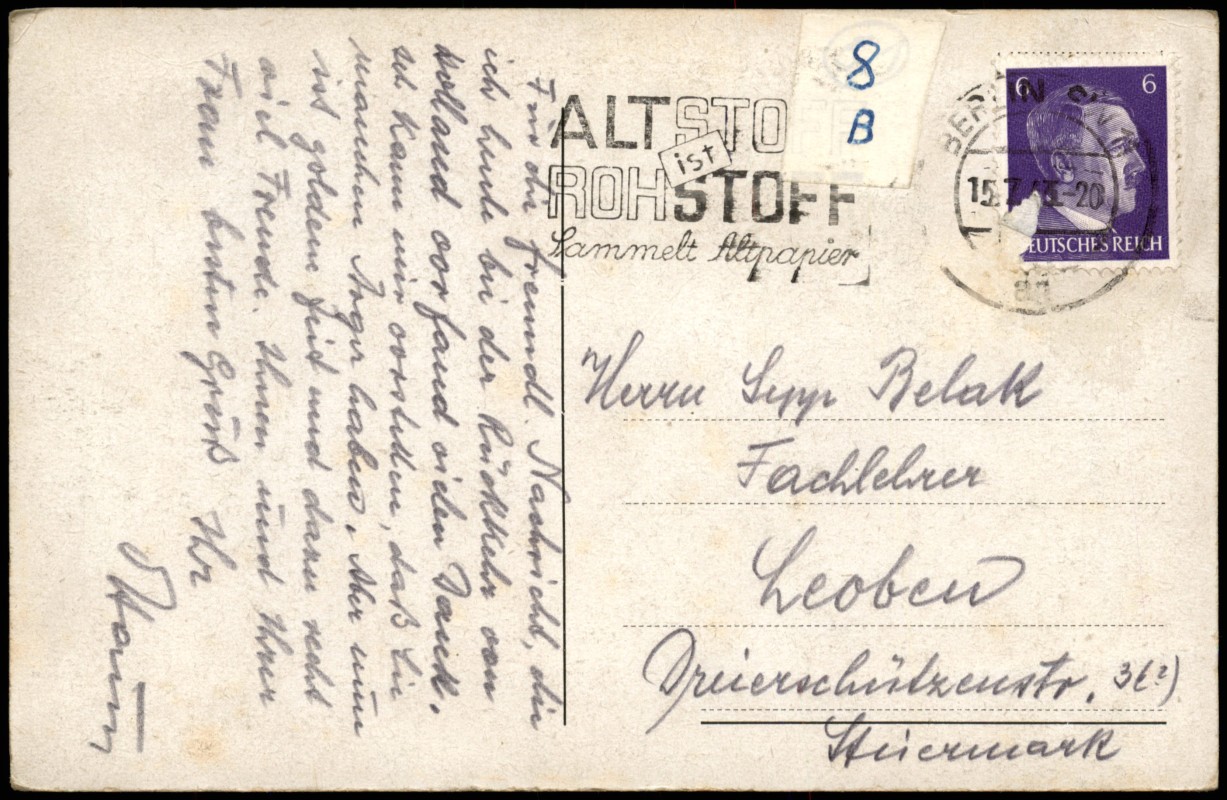 Für die freundl. Nachricht, die
ich heute bei der Rückkehr von
Holland vorfand vielen Dank.
Ich kann mir vorstellen, daß Sie
manchen Ärger haben. Aber nun
ist goldene Zeit und dazu recht
viel Freude. Ihnen und Ihrer
Frau besten Gruß Ihr
8
B
ALTSTOFF
ist
ROHSTOFF
Sammelt Altpapier
BERLIN
15.7.43.-20
ad
6 6
DEUTSCHES REICH
Herrn Sepp Belak
Fachlehrer
Leoben
Dreierschützenstr. 36?)
Steiermark